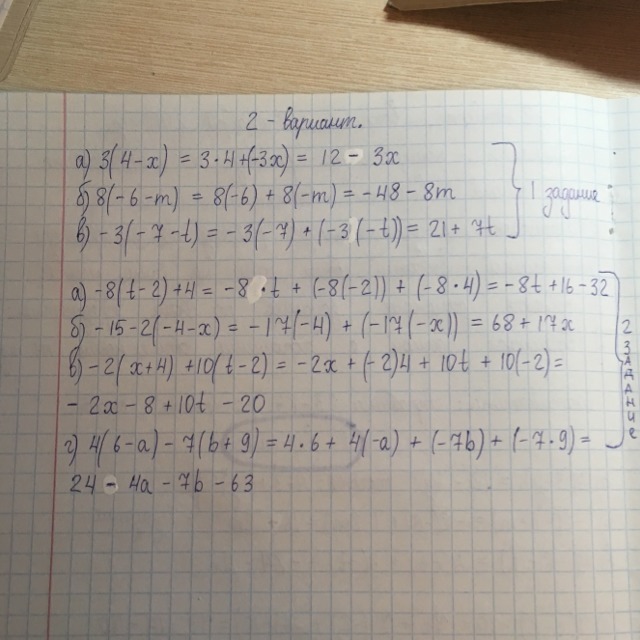 2 - вариант.
а) 3(4-x) = 3·4+(-3x) = 12 - 3x
б) 8(-6-m) = 8(-6) + 8(-m) = -48 - 8m
в) -3(-7-t) = -3(-7) + (-3(-t)) = 21 + 7t
1 задание
а) -8(t-2)+4 = -8·t + (-8(-2)) + (-8·4) = -8t+16-32
б) -15-2(-4-x) = -17(-4) + (-17(-x)) = 68+17x
в) -2(x+4) +10(t-2) = -2x+(-2)4 + 10t + 10(-2) =
- 2x - 8 + 10t - 20
г) 4(6-a) - 7(b+9) = 4·6 + 4(-a) + (-7b) + (-7·9) =
24 - 4a - 7b - 63
2 ЗАДАНИЕ